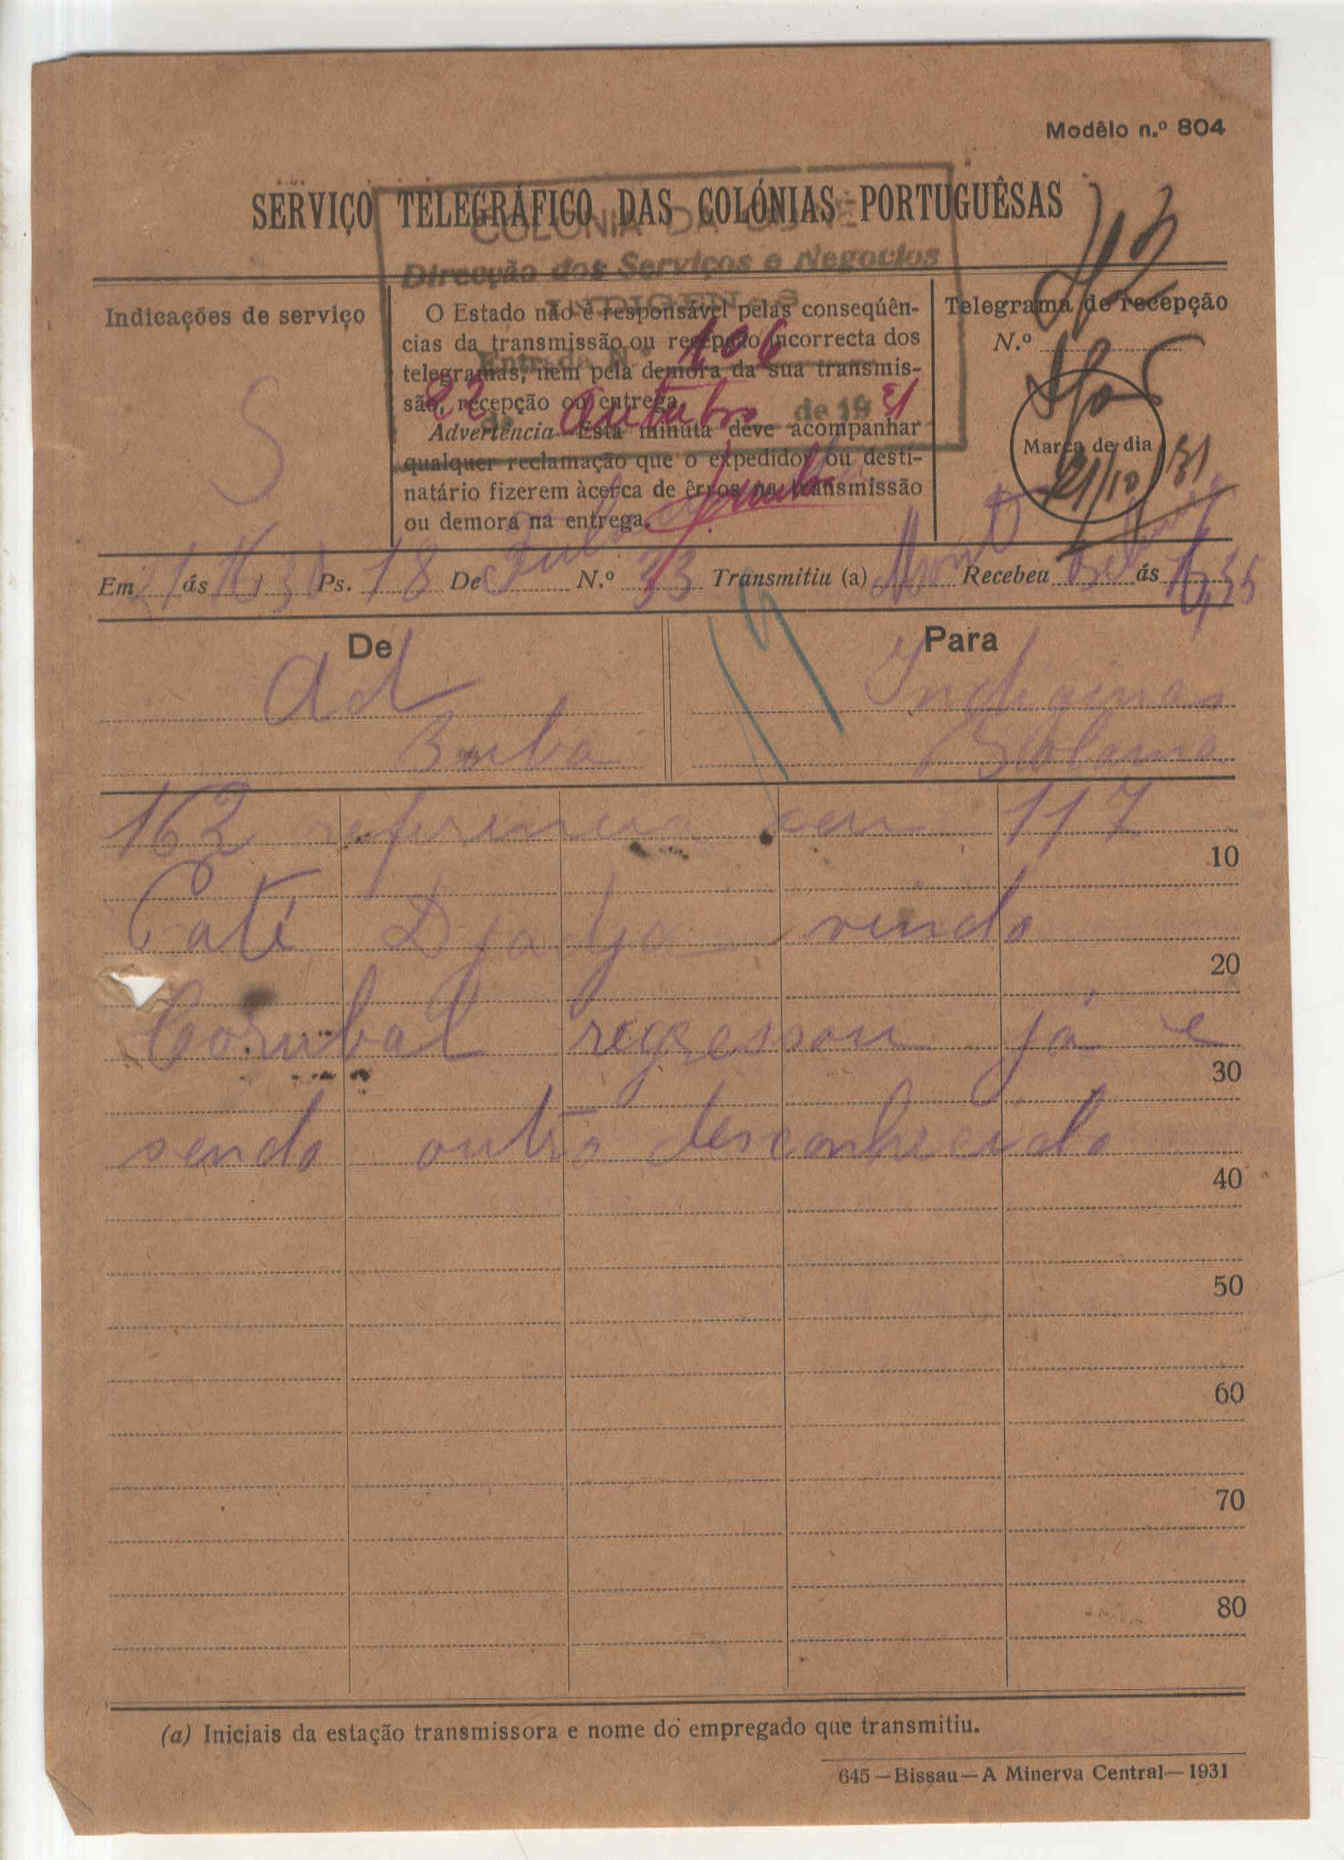 Modêlo n.º 804
SERVIÇO TELEGRÁFICO DAS COLÓNIAS PORTUGUÊSAS
COLONIA DA GUINÉ
Direcção dos Serviços e Negocios
INDIGENAS
Entrada N.º 106
23 de Outubro de 1931
Indicações de serviço
S
O Estado não é responsável pelas conseqüên-
cias da transmissão ou recepção incorrecta dos
telegramas, nem pela demora da sua transmis-
são, recepção ou entrega.
Advertência—Esta minuta deve acompanhar
qualquer reclamação que o expedidor ou desti-
natário fizerem àcerca de êrros na transmissão
ou demora na entrega.
Telegrama de recepção
N.º
Marca de dia
21/10/31
Em 21 ás 16,30 Ps. 18 De Fulacunda N.º 33 Transmitiu (a) Recebeu ás 16,35
De
Ad
Buba
Para
Indigenas
Bolama
19
162 referencia seu 117
Pati Djadja vindo
Corubal regressou já e
sendo outro desconhecido
10
20
30
40
50
60
70
80
(a) Iniciais da estação transmissora e nome do empregado que transmitiu.
645—Bissau—A Minerva Central—1931